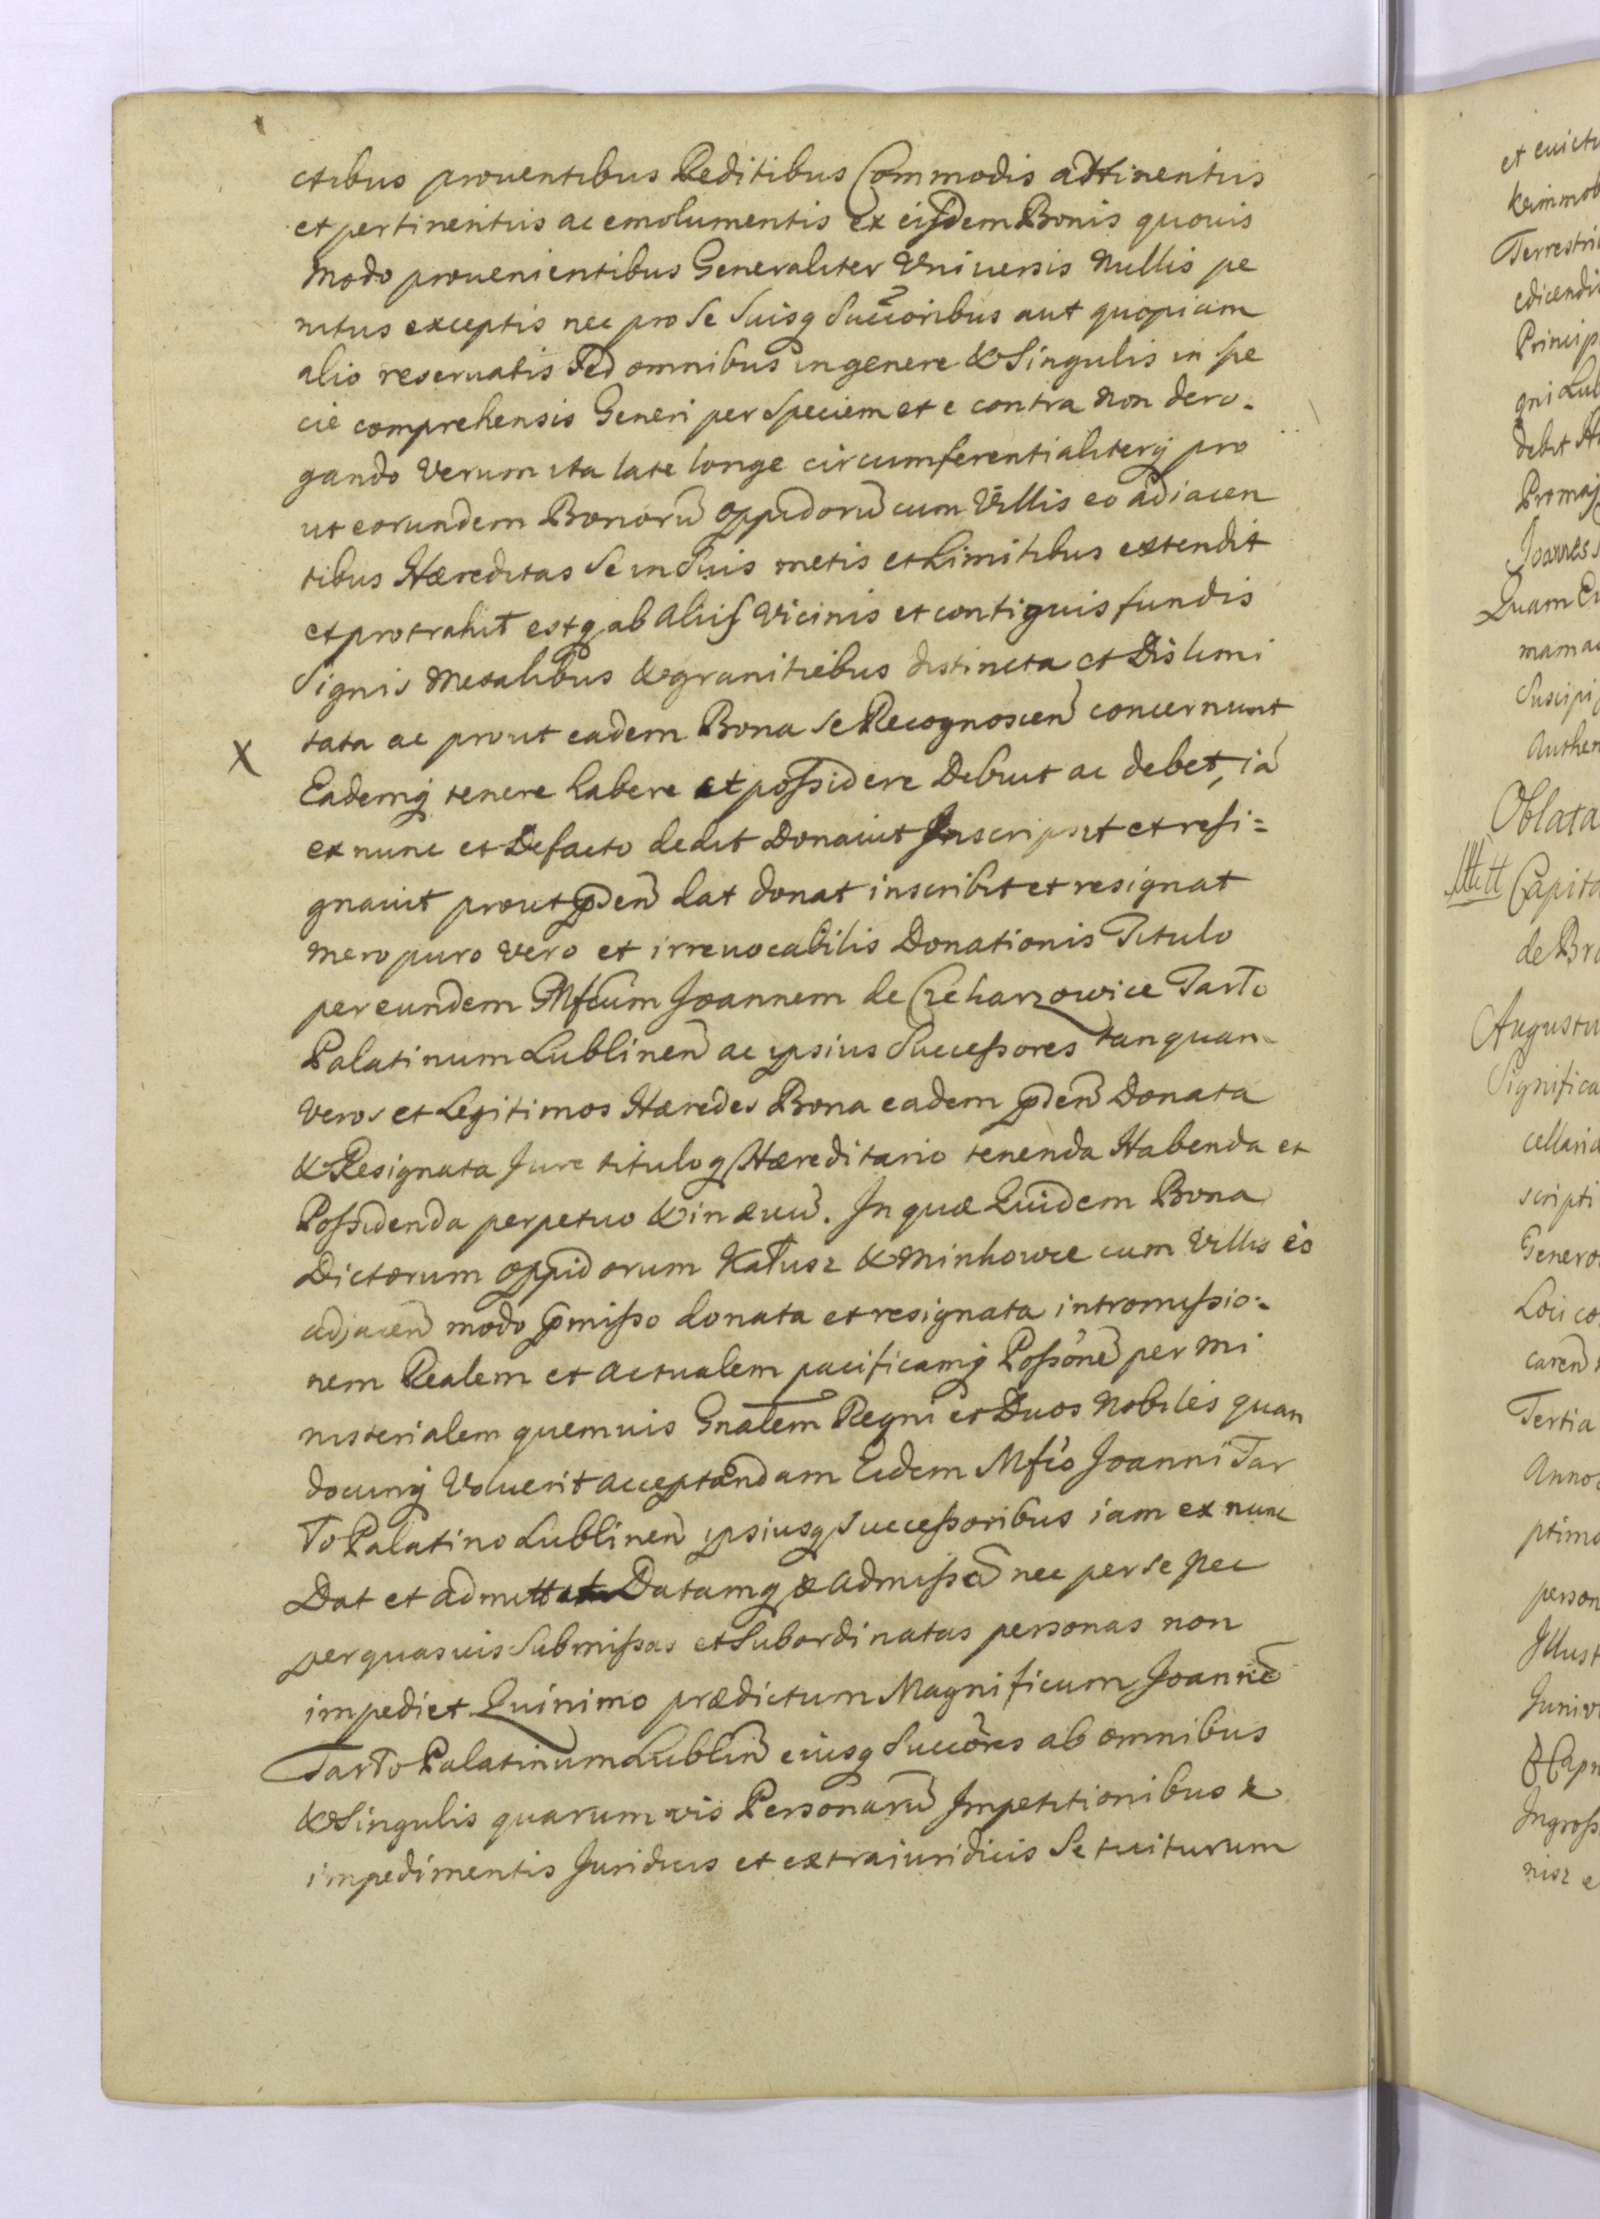 ctibus prouentibus Reditibus Commodis adtinentiis
et pertinentiis ac emolumentis ex eisdem Bonis quouis
modo prouenientibus Generaliter Vniuersis nullis pe
nitus exceptis nec pro se suisq succoribus aut quopiam
alio reseruatis sed omnibus in genere & singulis in spe
cie comprehensis Generi per speciem et e contra non dero-
gando Verum ita late longe circumferentialiterq pro
ut eorundem Bonorū oppidorū cum Villis eo adiacen
tibus Hæreditas se in suis metis et Limitibus extendit
et protrahit estq ab aliis Vicinis et contiguis fundis
signis metalibus & granitiebus distincta et Dislimi
tata ac prout eadem Bona se Recognoscen̄ concernunt
X
Eademq tenere habere et possidere Debuit ac debet, iā
ex nunc et Defacto dedit Donauit Inscripsit et resi=
gnauit prout p̄den̄ dat donat inscribit et resignat
mero puro vero et irreuocabilis Donationis Titulo
per eundem Mfcum Joannem de Czekarzowice Tarło
Palatinum Lublinen̄ ac ipsius Successores tanquam
veros et Legitimos Hæredes Bona eadem p̄den̄ Donata
& Resignata Jure tituloq Hæreditario tenenda Habenda et
Possidenda perpetuo & in æuū. In quæ Quidem Bona
Dictorum oppidorum Kałusz & Minkowce cum Villis eo
adjacen̄ modo p̄misso donata et resignata intromissio-
nem Realem et actualem pacificamq Possōnē per mi
nisterialem quemuis Gnalem Regni et Duos Nobiles quan
docunq Voluerit acceptandam Eidem Mfco Joanni Tar
ło Palatino Lublinen̄ ipsiusq successoribus iam ex nunc
Dat et admittit Datamq & admissā nec per se nec
per quasuis submissas et subordinatas personas non
impediet Quinimo prædictum Magnificum Joannē
Tarło Palatinum Lublin̄ eiusq Succōres ab omnibus
& singulis quarumvis Personarū Impetitionibus &
impedimentis Juridicis et extraiuridicis se tuiturum
et euictu
Terrestri
edicendi
Princip
gni Lub
debit
Joannes
Quam
Suscipi
Authen
Oblata
Capita
de Bro
Augustu
Significa
cellaria
scripti
Genero
Loci co
caren̄
Tertia
Anno
ptimo
person
Illust
Ingross